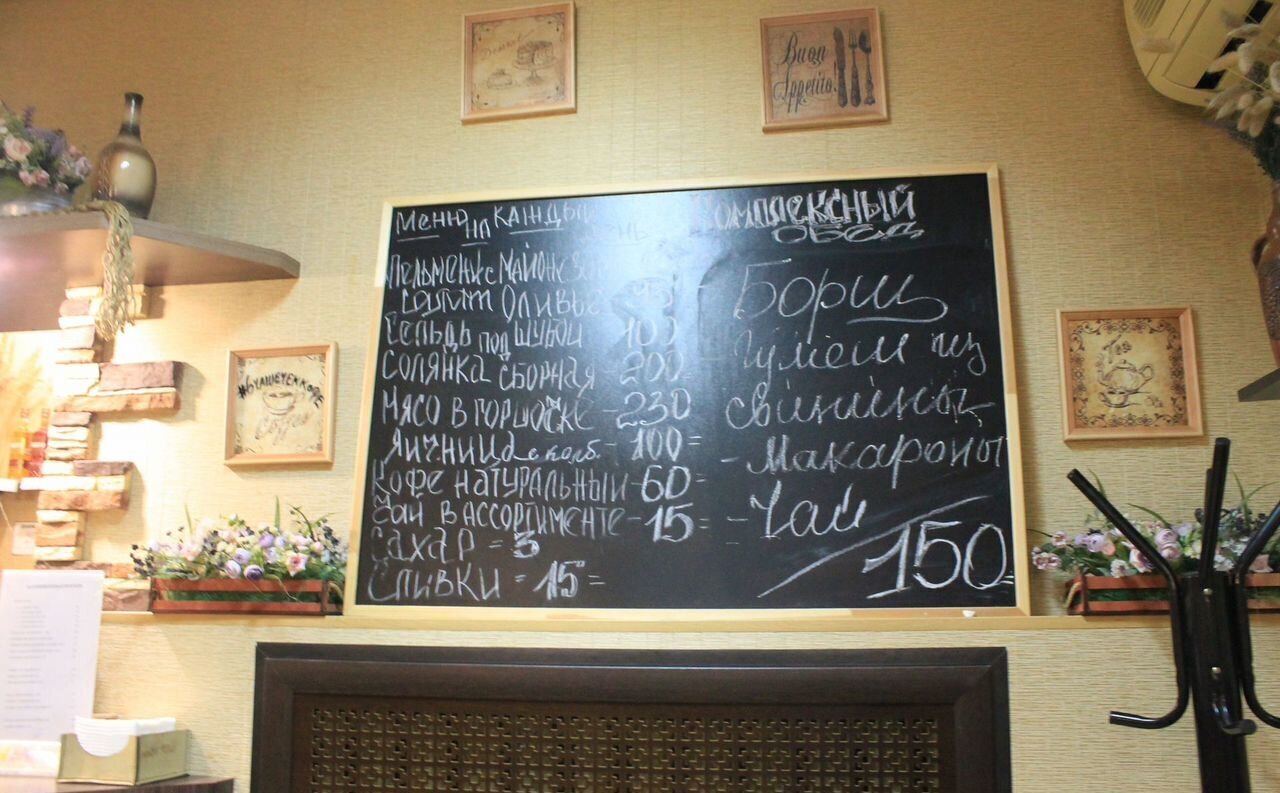 Dessert
Buon
Appetito
#БУДАШЕЧЕККОФЕ
Coffee
Меню на каждый день
Пельмени с майонезом
Салат Оливье
Сельдь под шубой 100
Солянка сборная 200
Мясо в горшочке - 230
Яичница с колб. - 100=
Кофе натуральный - 60=
Чай в ассортименте - 15=
Сахар = 3
Сливки = 15=
Комплексный
обед
Борщ
Гуляш из
свинины
- Макароны
- Чай
150=